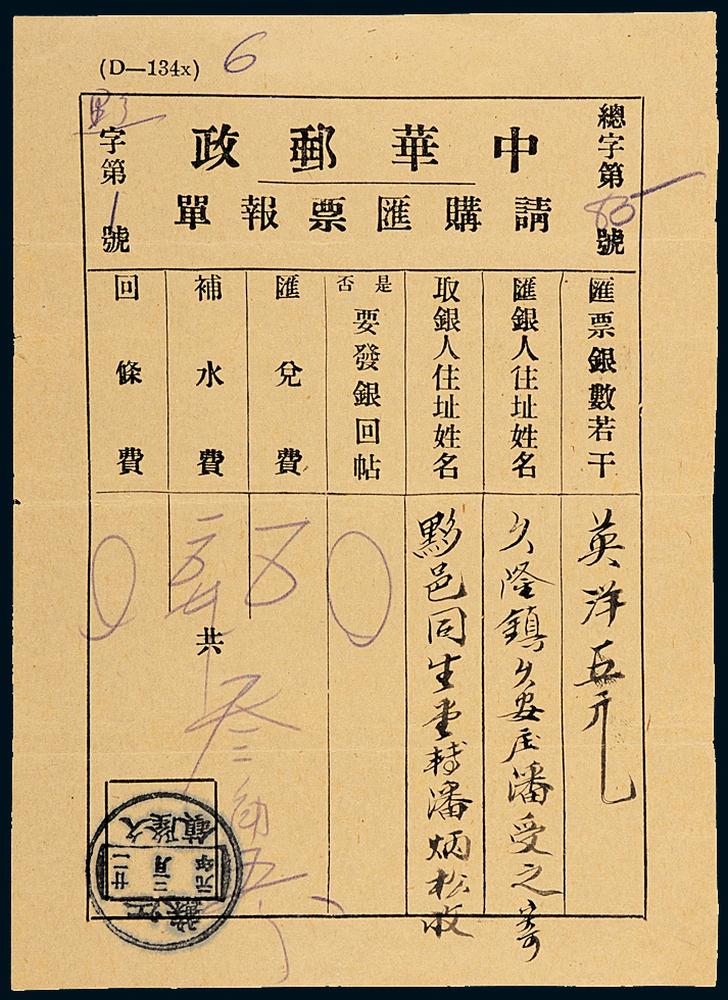 (D—134x) 6
總字第85號
中華郵政
請購匯票報單
黟字第1號
匯票銀數若干
英洋五元
匯銀人住址姓名
久隆鎮久安庄潘受之寄
取銀人住址姓名
黟邑同生堂轉潘炳松收
是否要發銀回帖
匯兌費
補水費
回條費
共
叁角五
久隆鎮
元年
三月
廿二
江蘇